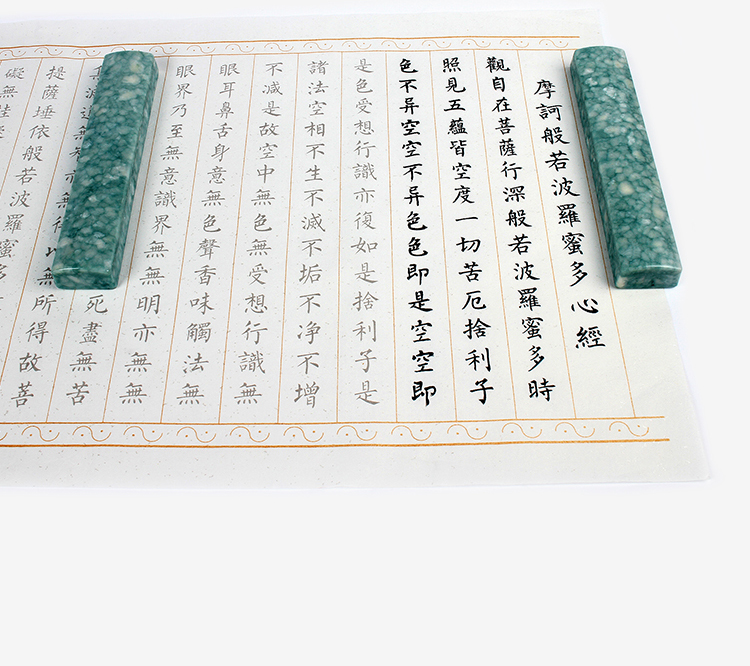 摩訶般若波羅蜜多心經
觀自在菩薩行深般若波羅蜜多時
照見五蘊皆空度一切苦厄捨利子
色不异空空不异色色即是空空即
是色受想行識亦復如是捨利子是
諸法空相不生不滅不垢不净不增
不減是故空中無色無受想行識無
眼耳鼻舌身意無色聲香味觸法無
眼界乃至無意識界無無明亦無
死盡無苦
無所得故菩
提薩埵依般若波羅蜜多
礙無